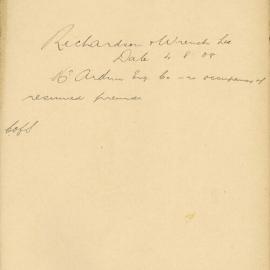 Richardson & Wrench Ltd
Date 4 8 08
McArdum Eng. Co - re occupancy of
resumed premises